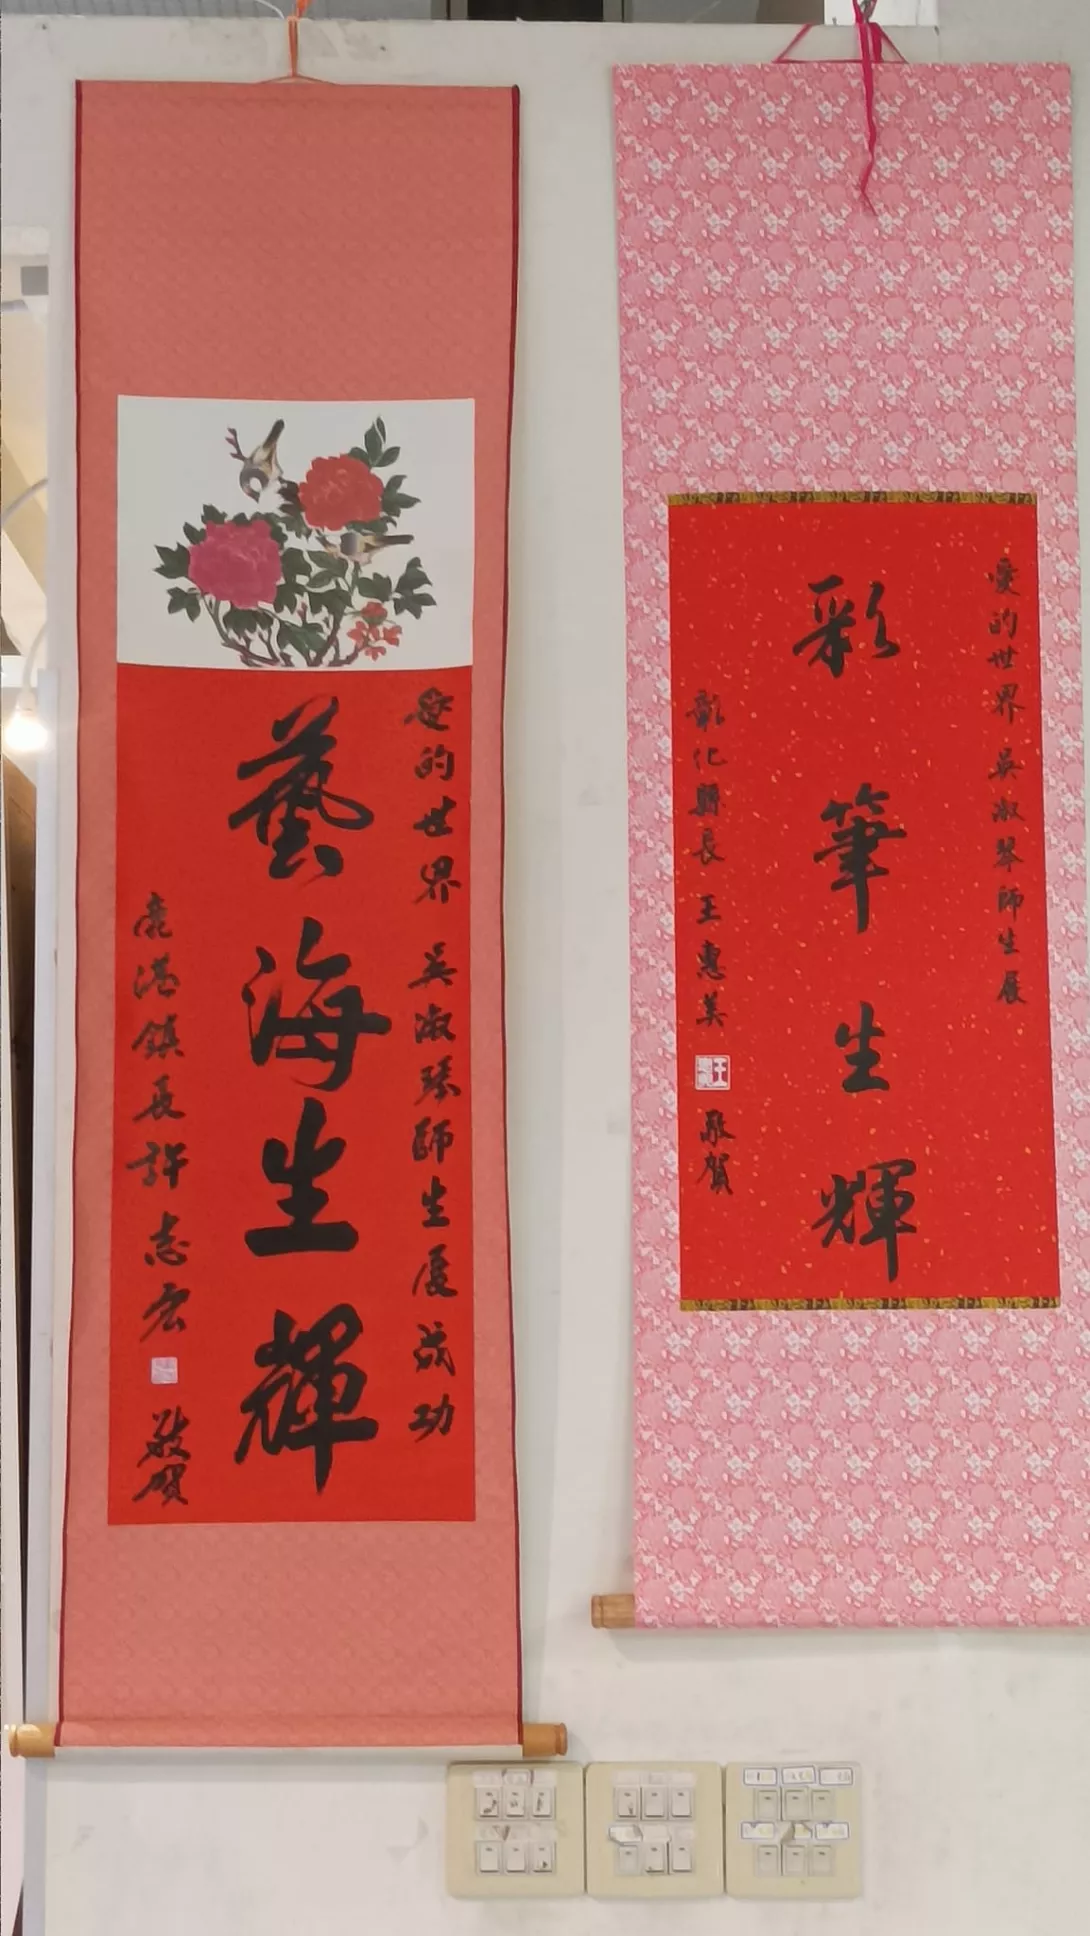 愛的世界 吳淑琴師生展
彩筆生輝
彰化縣長 王惠美 敬賀
愛的世界 吳淑琴師生展成功
藝海生輝
鹿港鎮長許志宏 敬賀